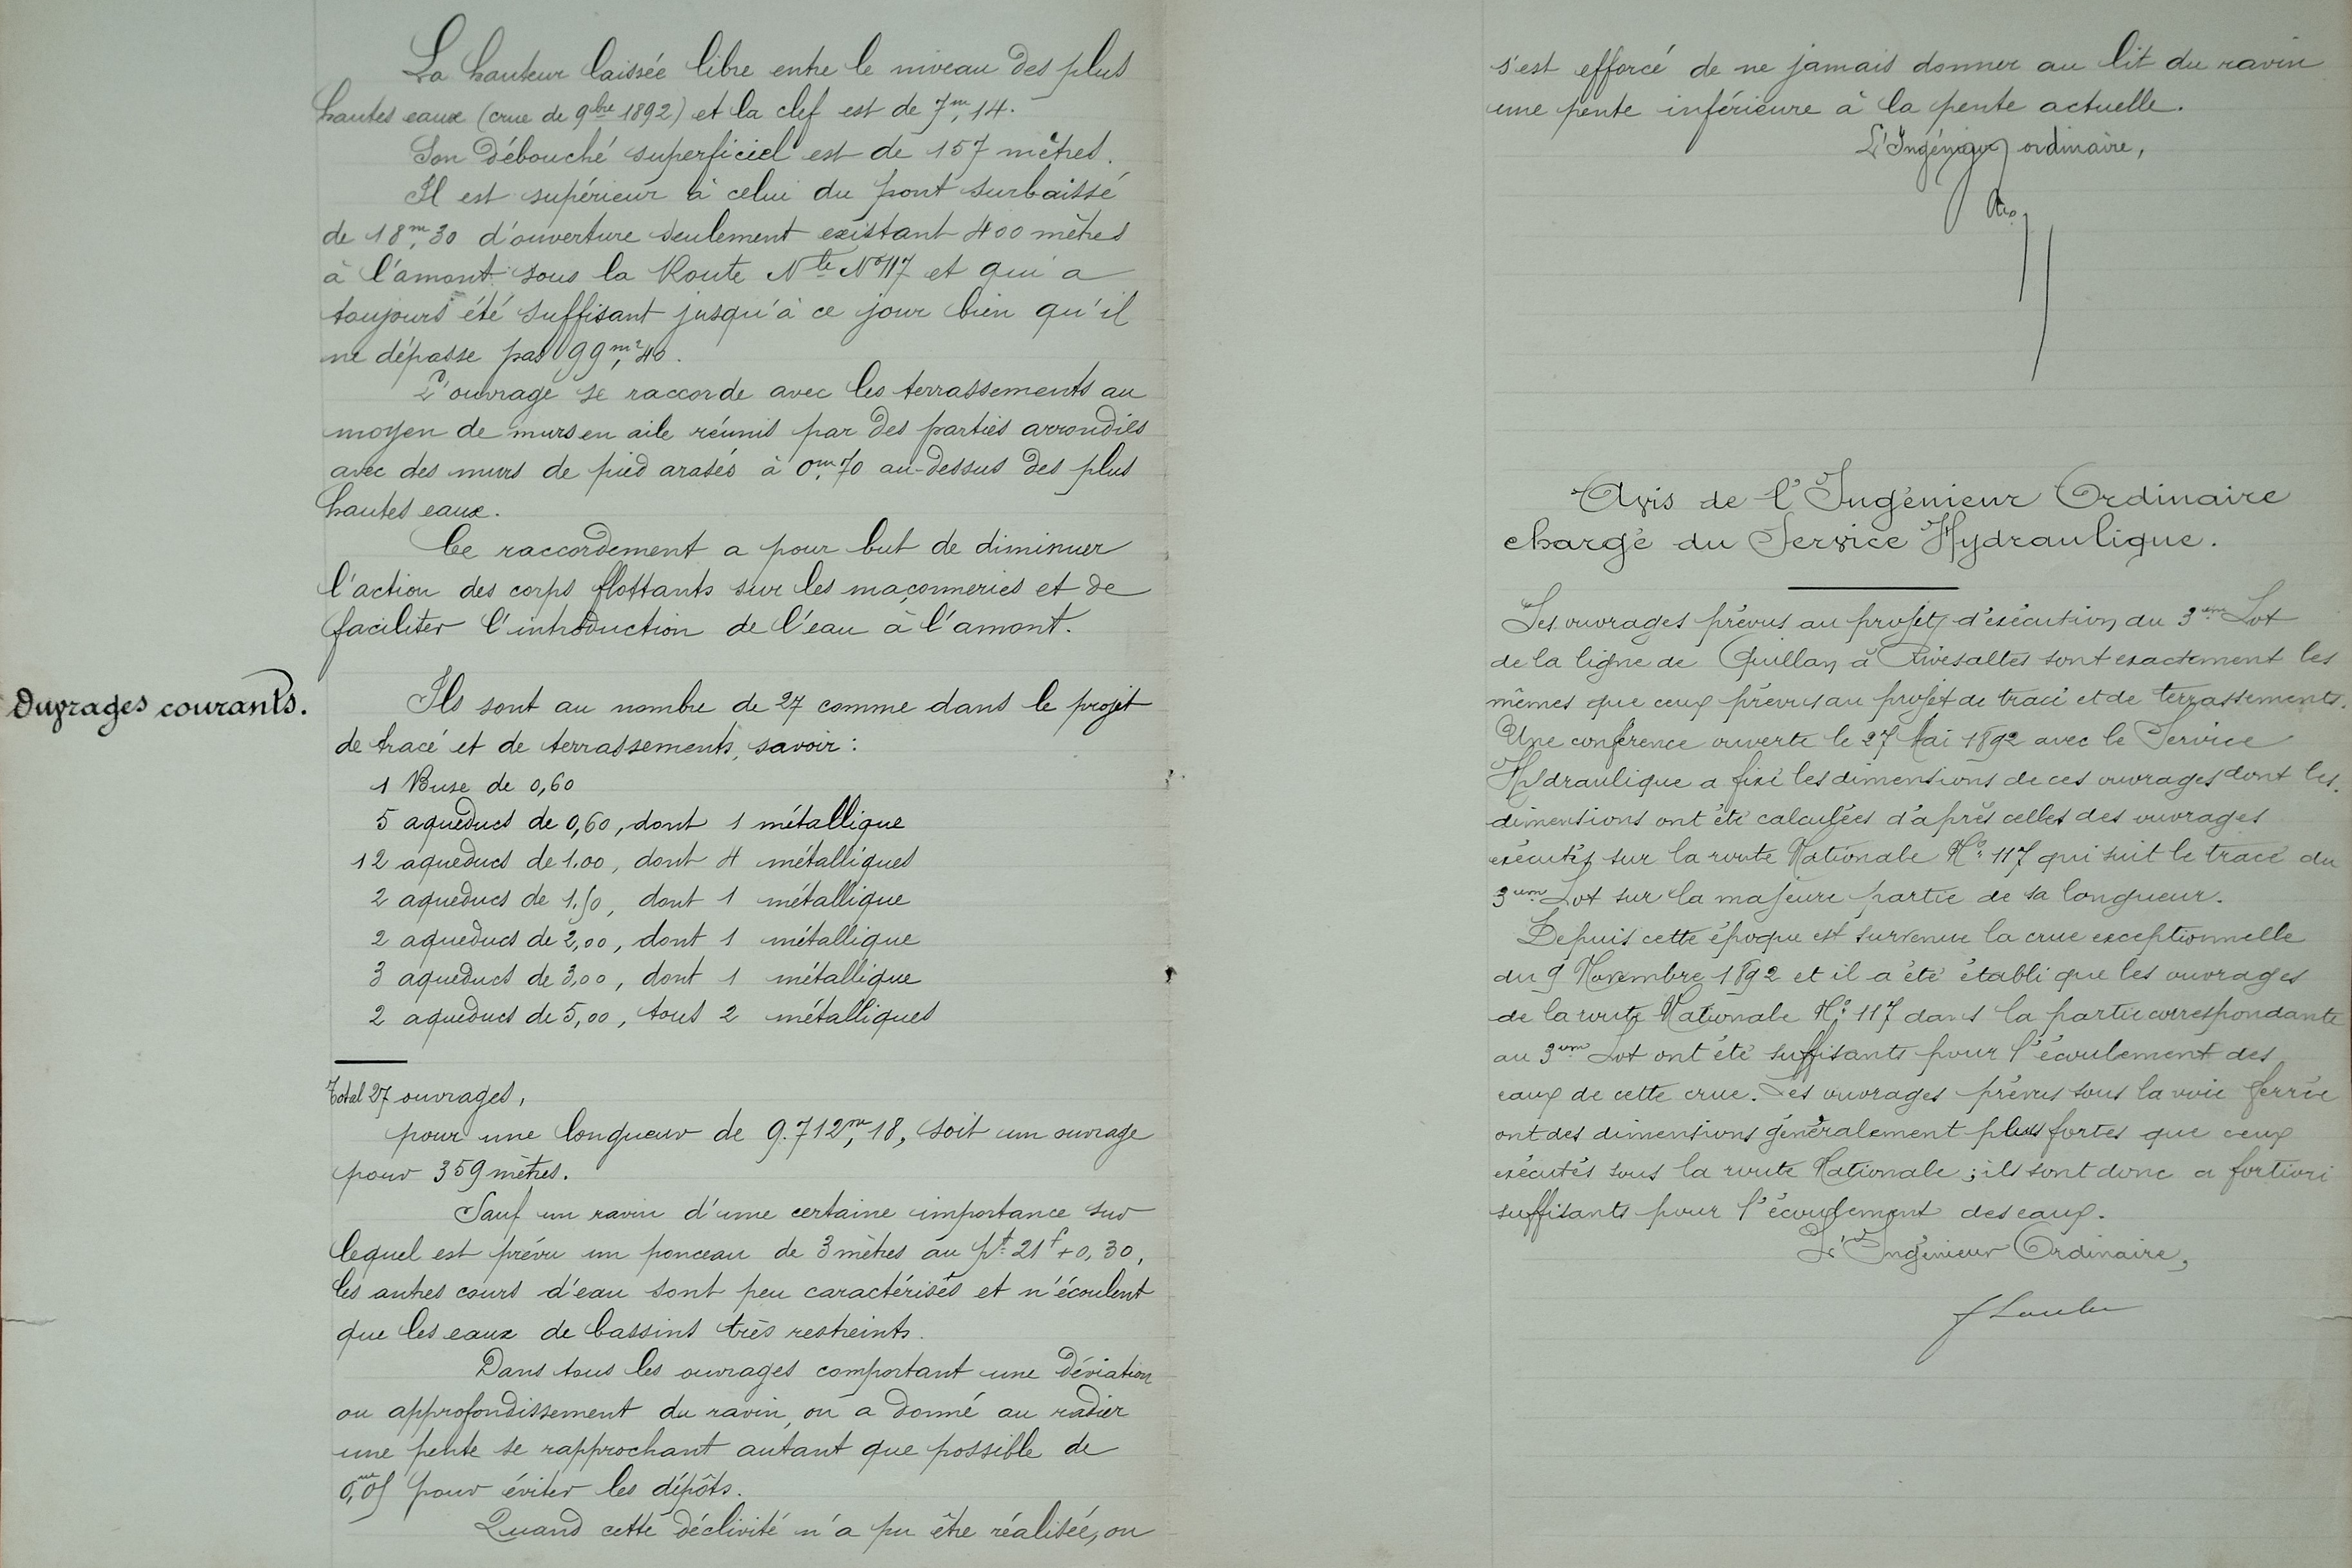 La hauteur laissée libre entre le niveau des plus
hautes eaux (crue de 9bre 1892) et la clef est de 7m,14.
Son débouché superficiel est de 157 mètres.
Il est supérieur à celui du pont surbaissé
de 18m,30 d'ouverture seulement existant 400 mètres
à l'amont sous la Route Nle No 117 et qui a
toujours été suffisant jusqu'à ce jour bien qu'il
ne dépasse pas 99m²,40.
L'ouvrage se raccorde avec les terrassements au
moyen de murs en aile réunis par des parties arrondies
avec des murs de pied arasés à 0m,70 au-dessus des plus
hautes eaux.
Ce raccordement a pour but de diminuer
l'action des corps flottants sur les maçonneries et de
faciliter l'introduction de l'eau à l'amont.
Ouvrages courants.
Ils sont au nombre de 27 comme dans le projet
de tracé et de terrassements, savoir :
1 Buse de 0,60
5 aqueducs de 0,60, dont 1 métallique
12 aqueducs de 1.00, dont 4 métalliques
2 aqueducs de 1.50, dont 1 métallique
2 aqueducs de 2,00, dont 1 métallique
3 aqueducs de 3,00, dont 1 métallique
2 aqueducs de 5,00, tous 2 métalliques
Total 27 ouvrages,
pour une longueur de 9.712m,18, soit un ouvrage
pour 359 mètres.
Sauf un ravin d'une certaine importance sur
lequel est prévu un ponceau de 3 mètres au pt 21f + 0,30,
les autres cours d'eau sont peu caractérisés et n'écoulent
que les eaux de bassins très restreints.
Dans tous les ouvrages comportant une déviation
ou approfondissement du ravin, on a donné au radier
une pente se rapprochant autant que possible de
0,m05 pour éviter les dépôts.
Quand cette déclivité n'a pu être réalisée, on
s'est efforcé de ne jamais donner au lit du ravin
une pente inférieure à la pente actuelle.
L'Ingénieur ordinaire,
Avis de l'Ingénieur Ordinaire
chargé du Service Hydraulique.
Les ouvrages prévus au projet d'exécution du 3em Lot
de la ligne de Quillan à Rivesaltes sont exactement les
mêmes que ceux prévus au projet de tracé et de terrassements.
Une conférence ouverte le 27 Mai 1892 avec le Service
Hydraulique a fixé les dimensions de ces ouvrages dont les
dimensions ont été calculées d'après celles des ouvrages
exécutés sur la route Nationale No 117 qui suit le tracé du
3em Lot sur la majeure partie de sa longueur.
Depuis cette époque est survenue la crue exceptionnelle
du 9 Novembre 1892 et il a été établi que les ouvrages
de la route Nationale No 117 dans la partie correspondante
au 3em Lot ont été suffisants pour l'écoulement des
eaux de cette crue. Les ouvrages prévus sous la voie ferrée
ont des dimensions généralement plus fortes que ceux
exécutés sous la route Nationale ; ils sont donc a fortiori
suffisants pour l'écoulement des eaux.
L'Ingénieur Ordinaire,